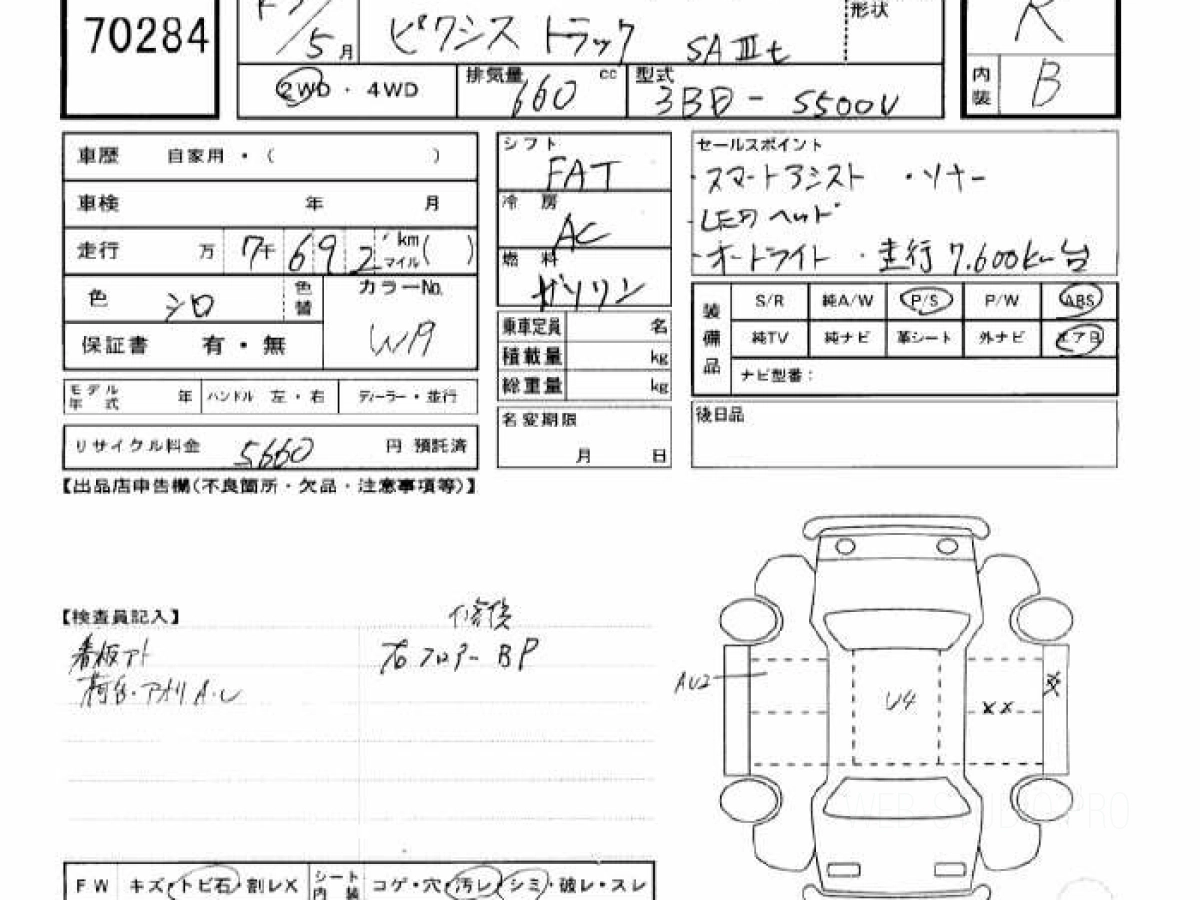 70284
5月
ピクシス トラック SAⅢt
形状
R
2WD・4WD
排気量 660 cc
型式 3BD-S500U
内装 B
車歴 自家用・( )
車検 年 月
走行 万 7千692 km マイル ( )
色 シロ 色替
カラーNo. W19
保証書 有・無
モデル年式 年 ハンドル 左・右 ディーラー・並行
リサイクル料金 5660 円 預託済
シフト FAT
冷房 AC
燃料 ガソリン
乗車定員 名
積載量 kg
総重量 kg
名変期限
月 日
セールスポイント
・スマートアシスト ・ソナー
・LEDヘッド
・オートライト ・走行7.600km台
装備品
S/R 純A/W P/S P/W ABS
純TV 純ナビ 革シート 外ナビ エアB
ナビ型番:
後日品
【出品店申告欄(不良箇所・欠品・注意事項等)】
【検査員記入】
看板アト
荷台・アオリA・U
右フロアーBP
AU2
U4
XX
FW キズ・トビ石・割レX
シート内装 コゲ・穴・汚レ・シミ・破レ・スレ
WEB STUDIO PRO